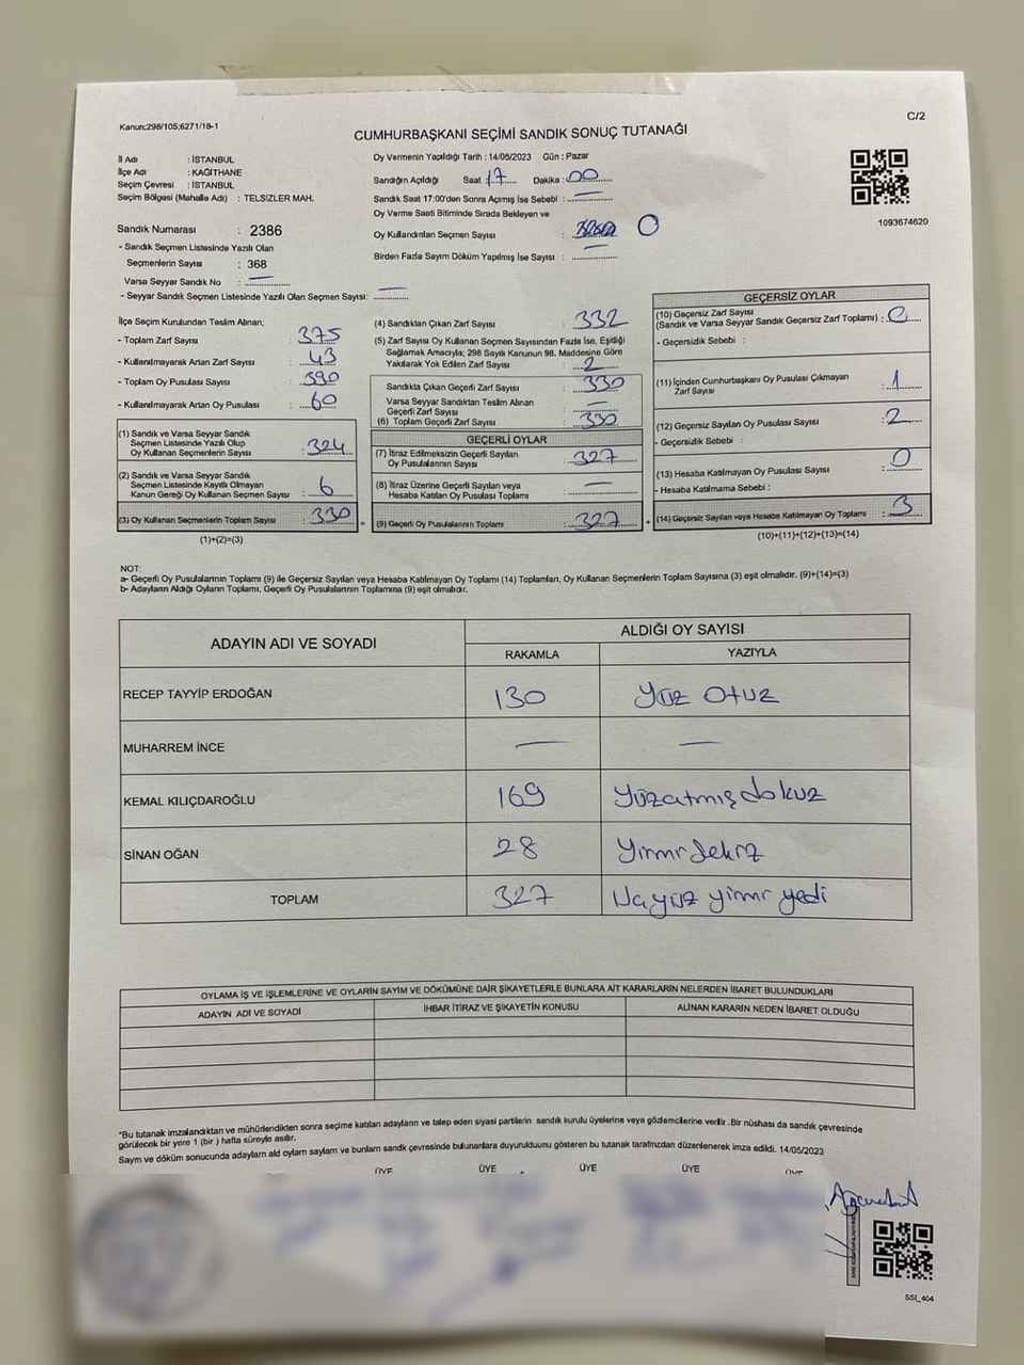 Kanun;298/105;6271/18-1
C/2
CUMHURBAŞKANI SEÇİMİ SANDIK SONUÇ TUTANAĞI
İl Adı : İSTANBUL
İlçe Adı : KAĞITHANE
Seçim Çevresi : İSTANBUL
Seçim Bölgesi (Mahalle Adı) : TELSİZLER MAH.
Sandık Numarası : 2386
- Sandık Seçmen Listesinde Yazılı Olan
Seçmenlerin Sayısı : 368
Varsa Seyyar Sandık No : —
- Seyyar Sandık Seçmen Listesinde Yazılı Olan Seçmen Sayısı: —
Oy Vermenin Yapıldığı Tarih : 14/05/2023 Gün : Pazar
Sandığın Açıldığı Saat : 17 Dakika : 00
Sandık Saat 17:00'den Sonra Açılmış İse Sebebi : —
Oy Verme Saati Bitiminde Sırada Bekleyen ve
Oy Kullandırılan Seçmen Sayısı : 0
Birden Fazla Sayım Döküm Yapılmış İse Sayısı : —
1093674620
İlçe Seçim Kurulundan Teslim Alınan;
- Toplam Zarf Sayısı : 375
- Kullanılmayarak Artan Zarf Sayısı : 43
- Toplam Oy Pusulası Sayısı : 390
- Kullanılmayarak Artan Oy Pusulası : 60
(1) Sandık ve Varsa Seyyar Sandık
Seçmen Listesinde Yazılı Olup
Oy Kullanan Seçmenlerin Sayısı : 324
(2) Sandık ve Varsa Seyyar Sandık
Seçmen Listesinde Kayıtlı Olmayan
Kanun Gereği Oy Kullanan Seçmen Sayısı : 6
(3) Oy Kullanan Seçmenlerin Toplam Sayısı : 330
(1)+(2)=(3)
(4) Sandıktan Çıkan Zarf Sayısı : 332
(5) Zarf Sayısı Oy Kullanan Seçmen Sayısından Fazla İse, Eşitliği
Sağlamak Amacıyla; 298 Sayılı Kanunun 98. Maddesine Göre
Yakılarak Yok Edilen Zarf Sayısı : 2
Sandıkta Çıkan Geçerli Zarf Sayısı : 330
Varsa Seyyar Sandıktan Teslim Alınan
Geçerli Zarf Sayısı : —
(6) Toplam Geçerli Zarf Sayısı : 330
GEÇERLİ OYLAR
(7) İtiraz Edilmeksizin Geçerli Sayılan
Oy Pusulalarının Sayısı : 327
(8) İtiraz Üzerine Geçerli Sayılan veya
Hesaba Katılan Oy Pusulası Toplamı : —
(9) Geçerli Oy Pusulalarının Toplamı : 327
GEÇERSİZ OYLAR
(10) Geçersiz Zarf Sayısı
(Sandık ve Varsa Seyyar Sandık Geçersiz Zarf Toplamı) : 0
- Geçersizlik Sebebi :
(11) İçinden Cumhurbaşkanı Oy Pusulası Çıkmayan
Zarf Sayısı : 1
(12) Geçersiz Sayılan Oy Pusulası Sayısı : 2
- Geçersizlik Sebebi :
(13) Hesaba Katılmayan Oy Pusulası Sayısı : 0
- Hesaba Katılmama Sebebi :
(14) Geçersiz Sayılan veya Hesaba Katılmayan Oy Toplamı : 3
(10)+(11)+(12)+(13)=(14)
NOT:
a- Geçerli Oy Pusulalarının Toplamı (9) ile Geçersiz Sayılan veya Hesaba Katılmayan Oy Toplamı (14) Toplamları, Oy Kullanan Seçmenlerin Toplam Sayısına (3) eşit olmalıdır. (9)+(14)=(3)
b- Adayların Aldığı Oyların Toplamı, Geçerli Oy Pusulalarının Toplamına (9) eşit olmalıdır.
ADAYIN ADI VE SOYADI
ALDIĞI OY SAYISI
RAKAMLA YAZIYLA
RECEP TAYYİP ERDOĞAN 130 Yüz Otuz
MUHARREM İNCE — —
KEMAL KILIÇDAROĞLU 169 Yüzatmışdokuz
SİNAN OĞAN 28 Yirmi Sekiz
TOPLAM 327 Üçyüz yirmi yedi
OYLAMA İŞ VE İŞLEMLERİNE VE OYLARIN SAYIM VE DÖKÜMÜNE DAİR ŞİKAYETLERLE BUNLARA AİT KARARLARIN NELERDEN İBARET BULUNDUKLARI
ADAYIN ADI VE SOYADI İHBAR İTİRAZ VE ŞİKAYETİN KONUSU ALINAN KARARIN NEDEN İBARET OLDUĞU
*Bu tutanak imzalandıktan ve mühürlendikten sonra seçime katılan adayların ve talep eden siyasi partilerin sandık kurulu üyelerine veya gözlemcilerine verilir. Bir nüshası da sandık çevresinde
görülecek bir yere 1 (bir ) hafta süreyle asılır.
Sayım ve döküm sonucunda adayların aldı oyların sayların ve bunların sandık çevresinde bulunanlara duyurulduumı gösteren bu tutanak tarafmızdan düzenlenerek imza edildi. 14/05/2023
ÜYE ÜYE ÜYE ÜYE ÜYE
SSI_404